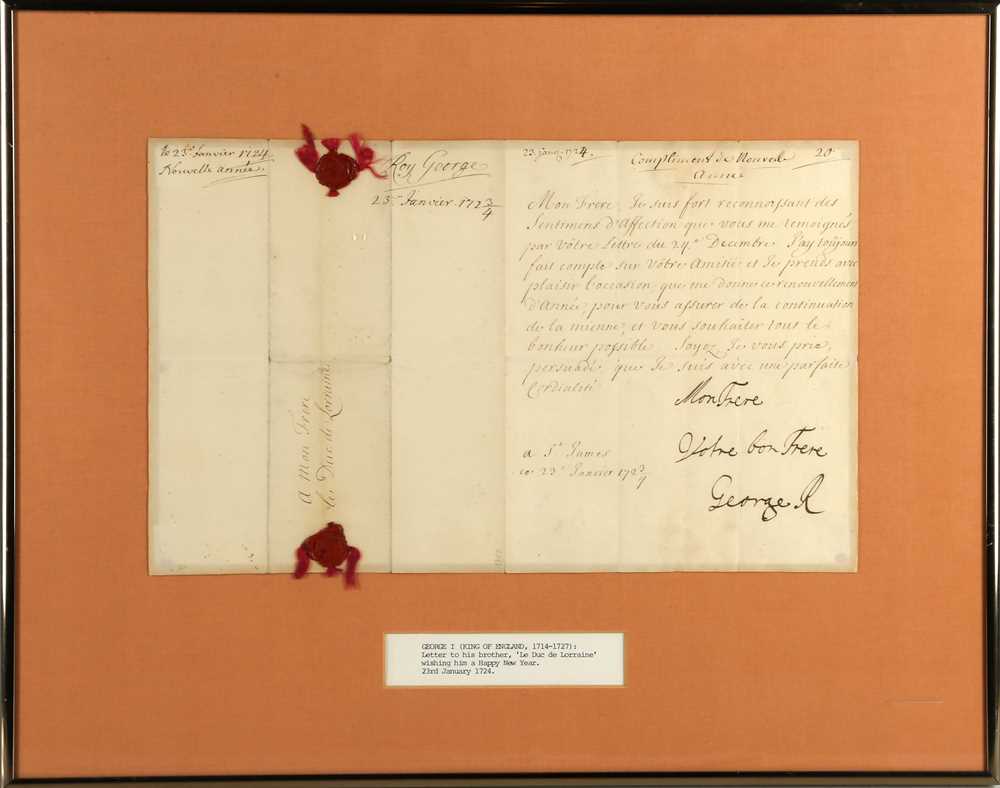 le 23.e Janvier 1724
Nouvelle année.
Roy George
23.e Janvier. 172 3/4
A Mon Frere
le Duc de Lorraine
23. janv. 1724.
Compliment de Nouvelle
Année
20
Mon Frere, Je suis fort reconnoissant des
Sentimens d'Affection que vous me temoignés
par Vôtre Lettre du 24.e Decembre. J'ay toûjours
fait compte sur Vôtre Amitié et Je prends avec
plaisir l'occasion, que me donne ce renouvellement
d'Année, pour vous assurer de la continuation
de la mienne, et vous souhaiter tous le
bonheur possible. Soyez, Je vous prie,
persuadé, que Je suis avec une parfaite
Cordialité
Mon Frere
A St. James
ce 23.e Janvier 172 3/4
Votre bon Frere
George R
GEORGE I (KING OF ENGLAND, 1714-1727):
Letter to his brother, 'Le Duc de Lorraine'
wishing him a Happy New Year.
23rd January 1724.